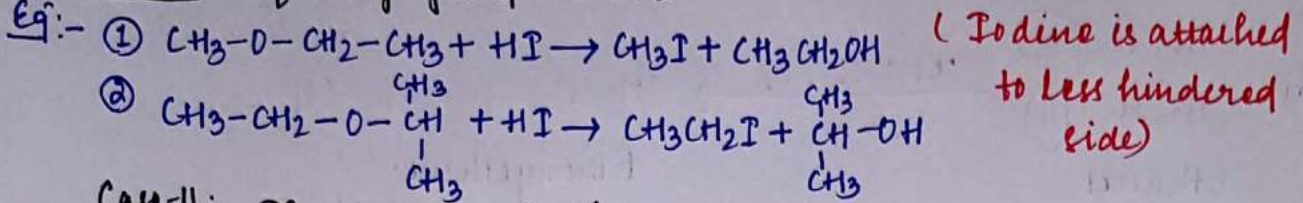 Eg:- ① CH3-O-CH2-CH3 + HI → CH3I + CH3CH2OH (Iodine is attached
to less hindered
side)
CH3 CH3
② CH3-CH2-O-CH + HI → CH3CH2I + CH-OH
CH3 CH3
Case-II: